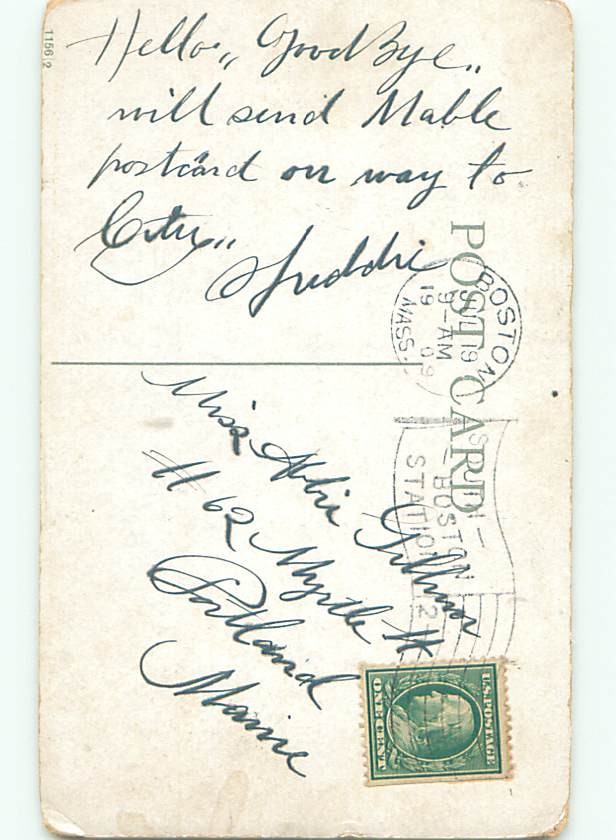 Hello,, Good Bye,,
will send Mable
postcard on way to
City,,
Freddie
POST CARD
BOSTON
19
9-AM
19 09
MASS.
BOSTON
STATION
2
Miss Abbie
# 62 Myrtle St
Portland
Maine
U.S. POSTAGE
ONE CENT
1156/2